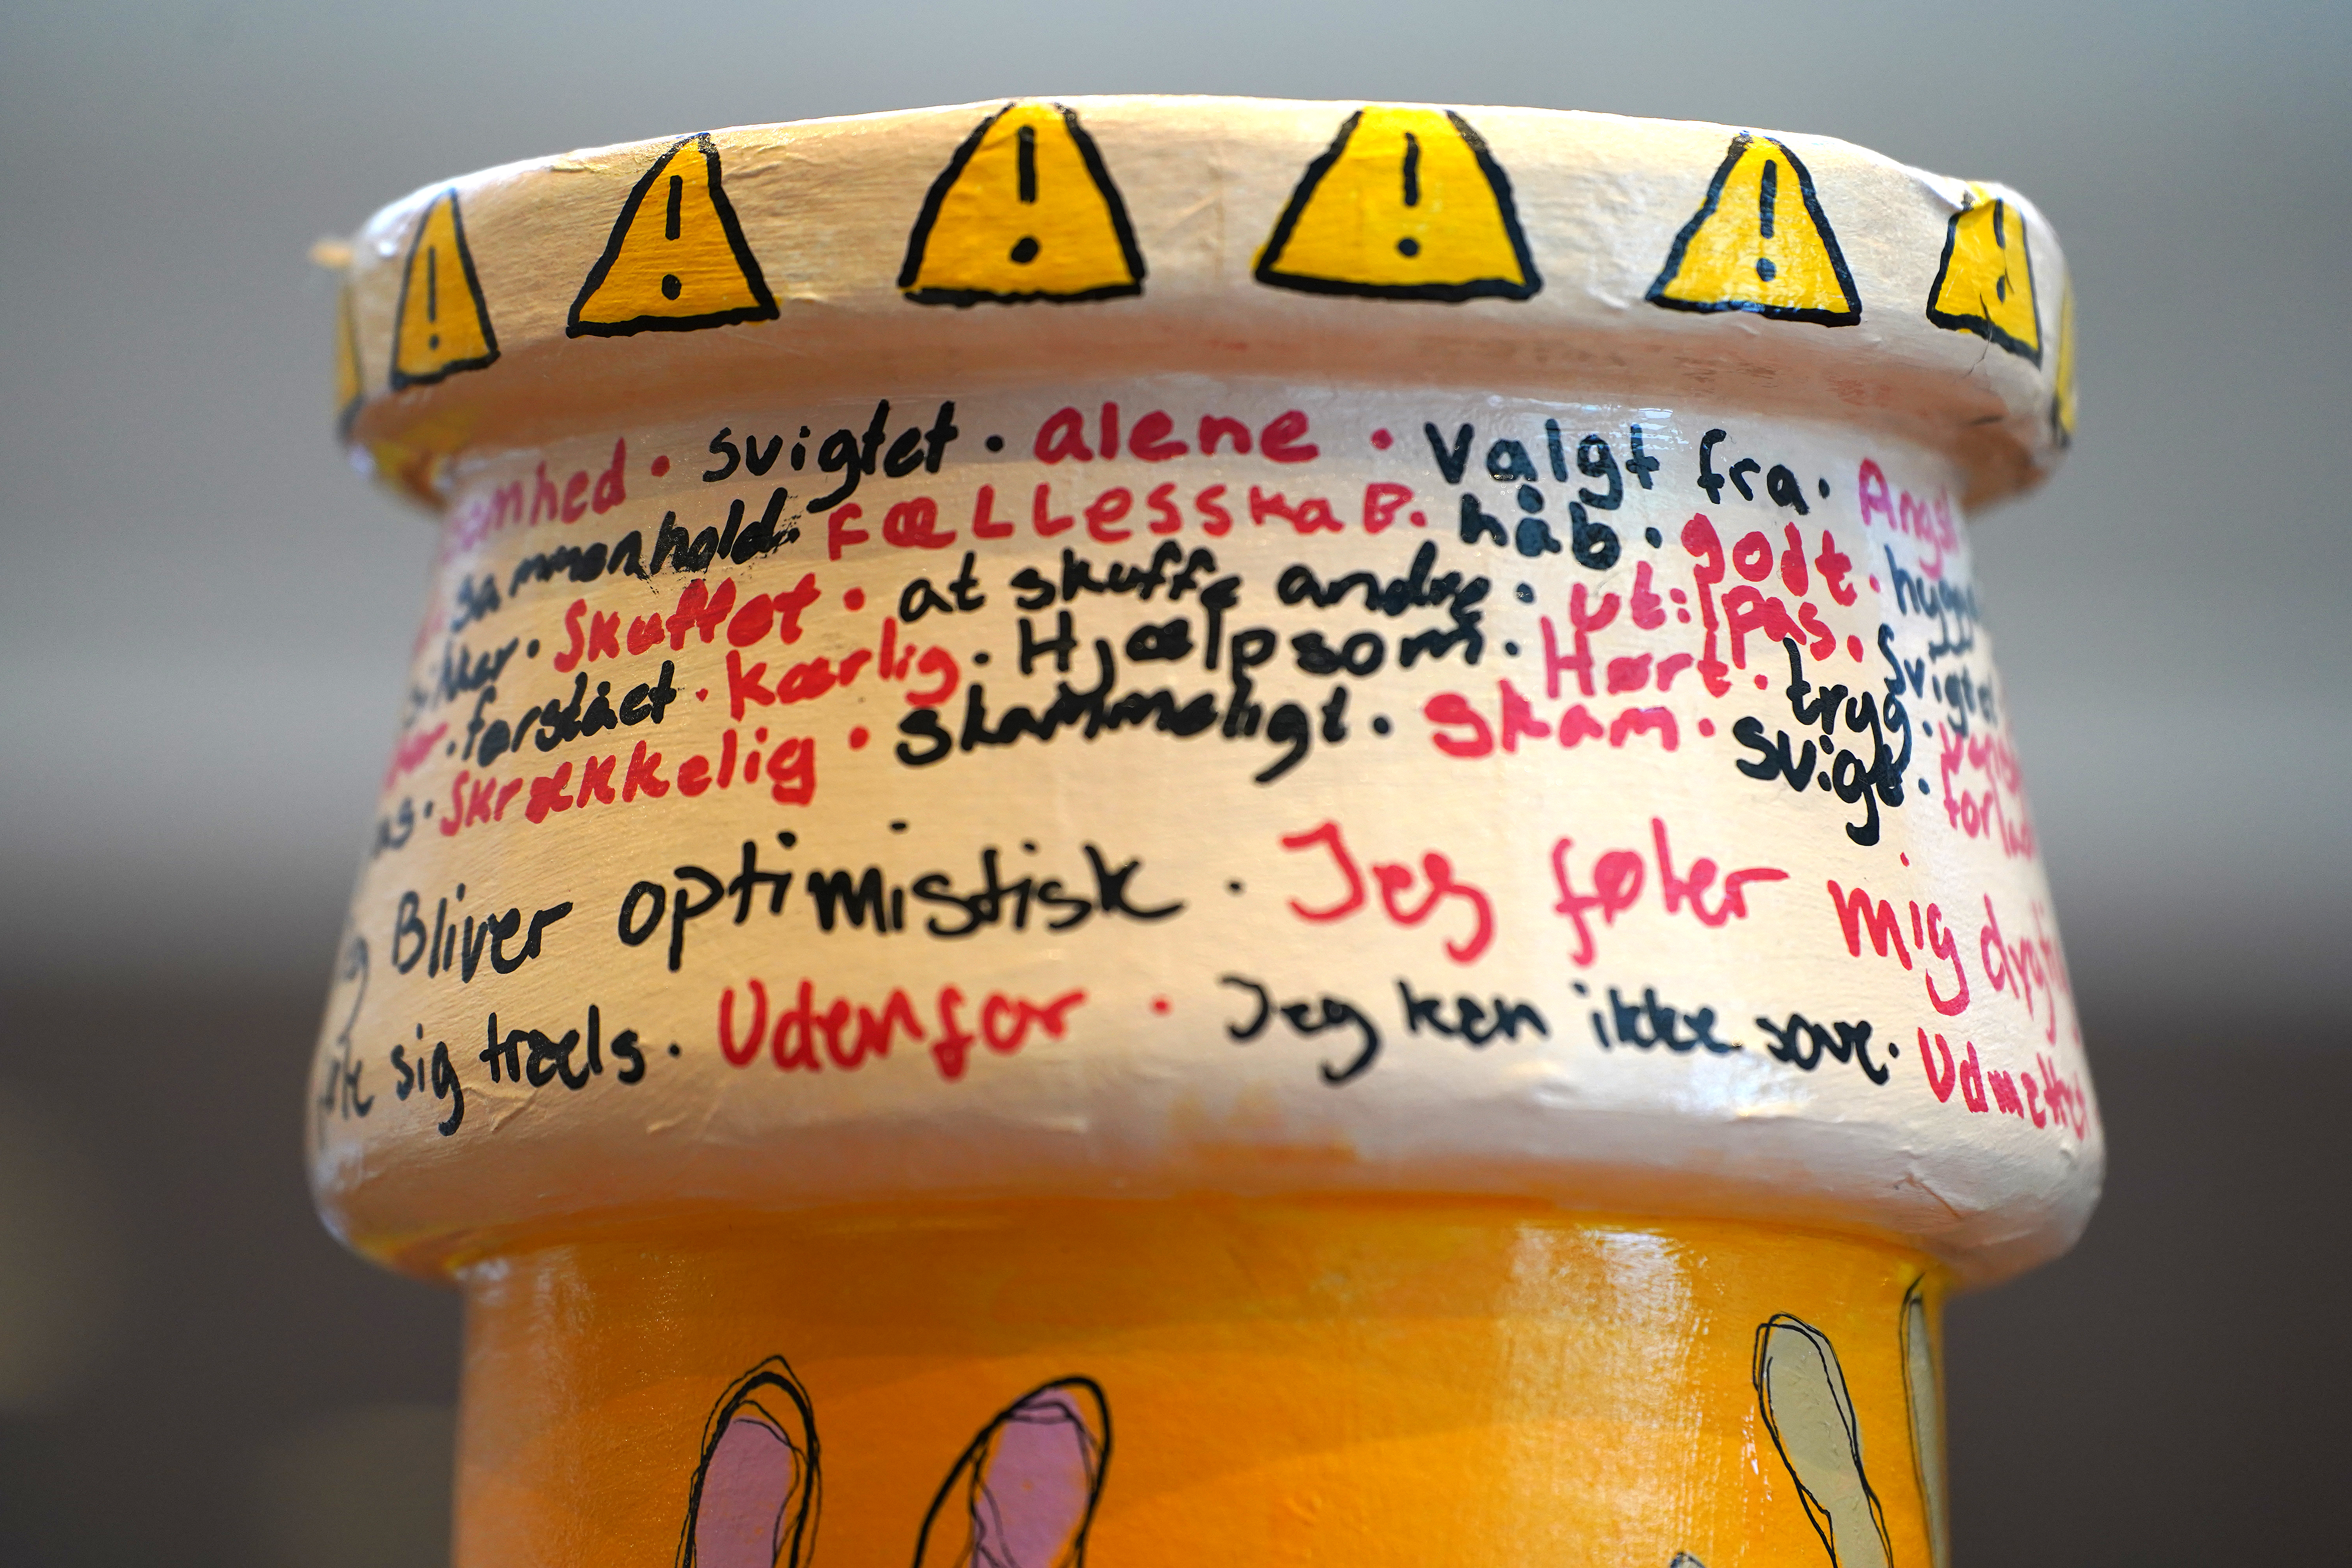 svigtet · alene · valgt fra · Angst
sammenhold · FÆLLESSKAB. håb · godt · hygge
Skuffet · at skuffe andre · utilpas. Svigtet
forstået · Kærlig · Hjælpsom · Hørt · tryg ·
Skrækkelig · skammeligt · skam · svigt ·
Bliver optimistisk · Jeg føler mig dygtig
sig træls. Udenfor · Jeg kan ikke sove. Udmattet